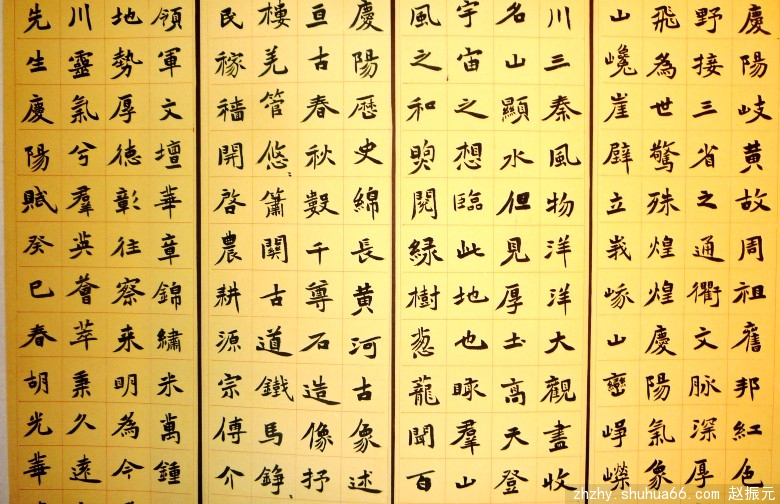 慶陽岐黄故周祖舊邦紅色
野接三省之通衢文脈深厚
飛為世驚殊煌煌慶陽氣象
山巉崖壁立峩峨山巒崢嶸
川三秦風物洋洋大觀盡收
名山顯水但見厚土高天登
宇宙之想臨此地也瞰羣山
風之和煦閲緑樹葱蘢聞百
慶陽歷史綿長黄河古象述
亘古春秋數千尊石造像抒
樓羌管悠〻簫關古道鐵馬錚〻
民稼穡開啓農耕源宗傳介
領軍文壇華章錦繡米萬鍾
地勢厚德彰往察来明為今
川靈氣兮羣英薈萃秉久遠
先生慶陽賦癸巳春胡光華
zhzhy.shuhua66.com 赵振元